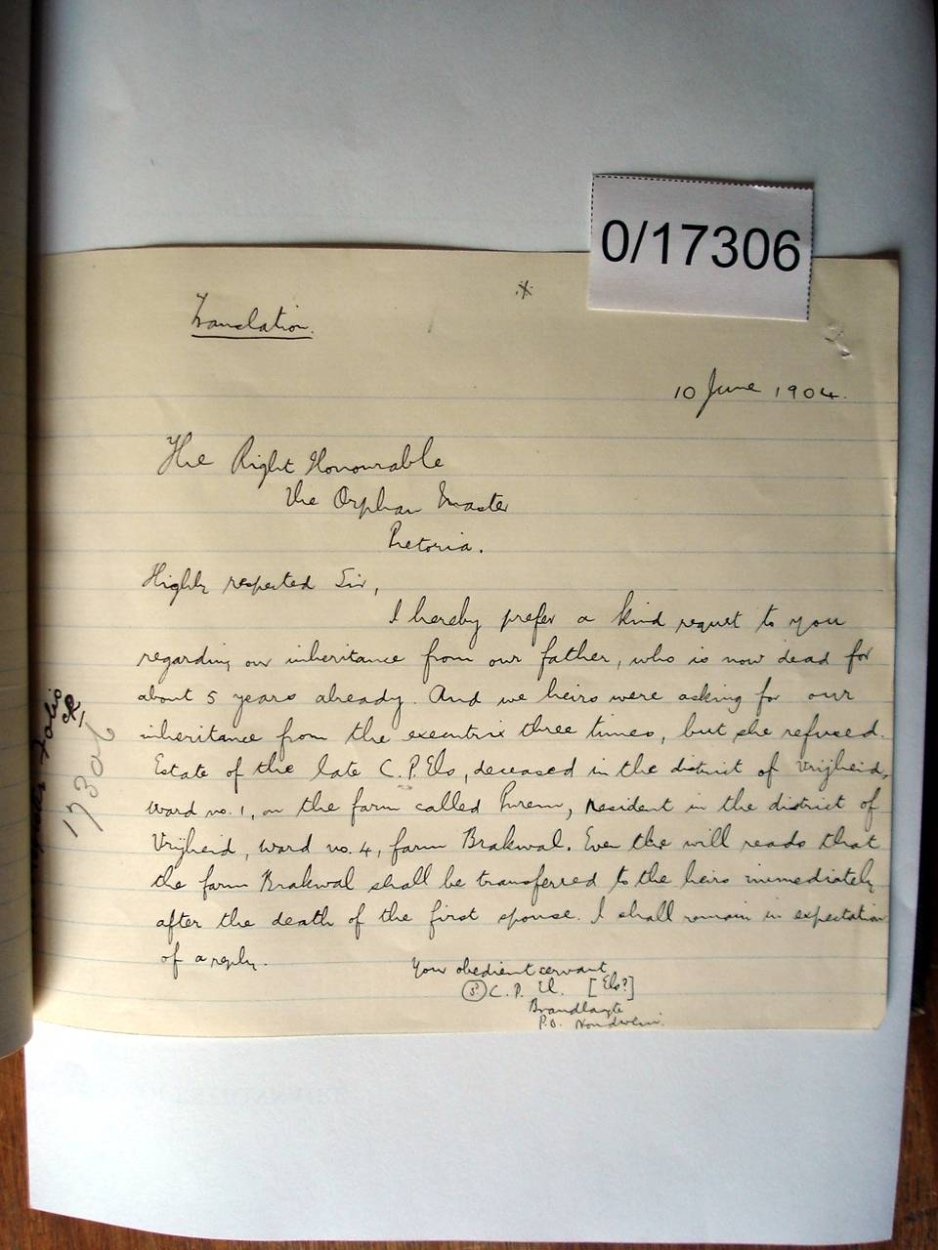 0/17306
Translation.
10 June 1904.
The Right Honourable
the Orphan Master
Pretoria.
Highly respected Sir,
I hereby prefer a kind request to you
regarding our inheritance from our father, who is now dead for
about 5 years already. And we heirs were asking for our
inheritance from the executrix three times, but she refused.
Estate of the late C.P. Els, deceased in the district of Vrijheid,
ward no. 1, on the farm called, resident in the district of
Vrijheid, ward no. 4, farm Brakwal. Even the will reads that
the farm Brakwal shall be transferred to the heirs immediately
after the death of the first spouse. I shall remain in expectation
of a reply.
Your obedient servant
(S) C. P. El. [Els?]
P.O. Nondweni.
17306